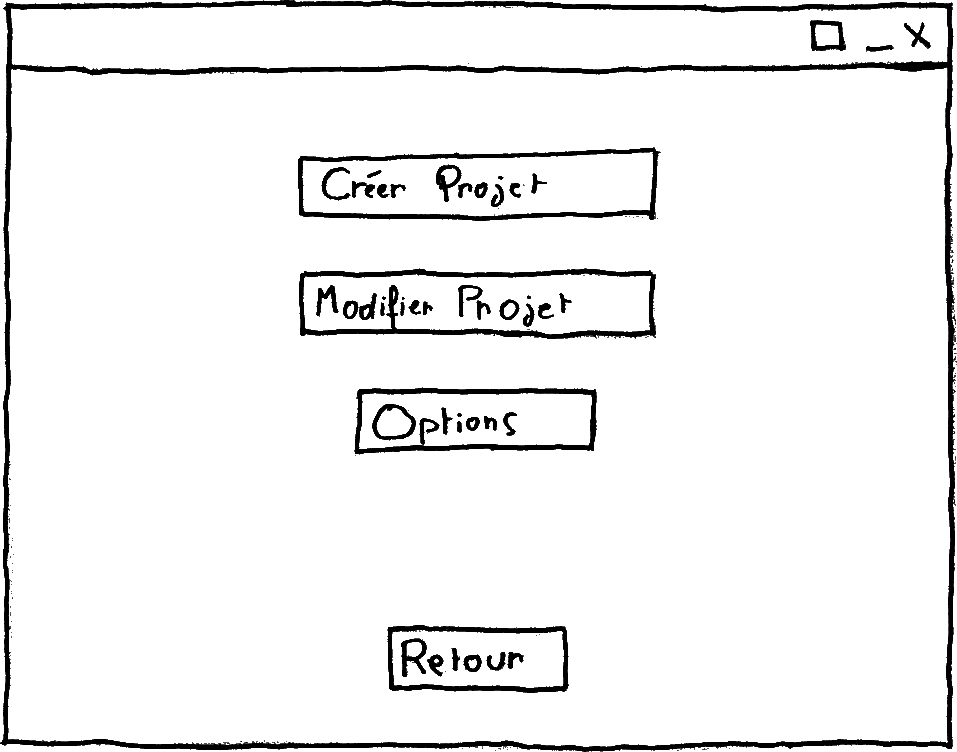 Créer Projet
Modifier Projet
Options
Retour